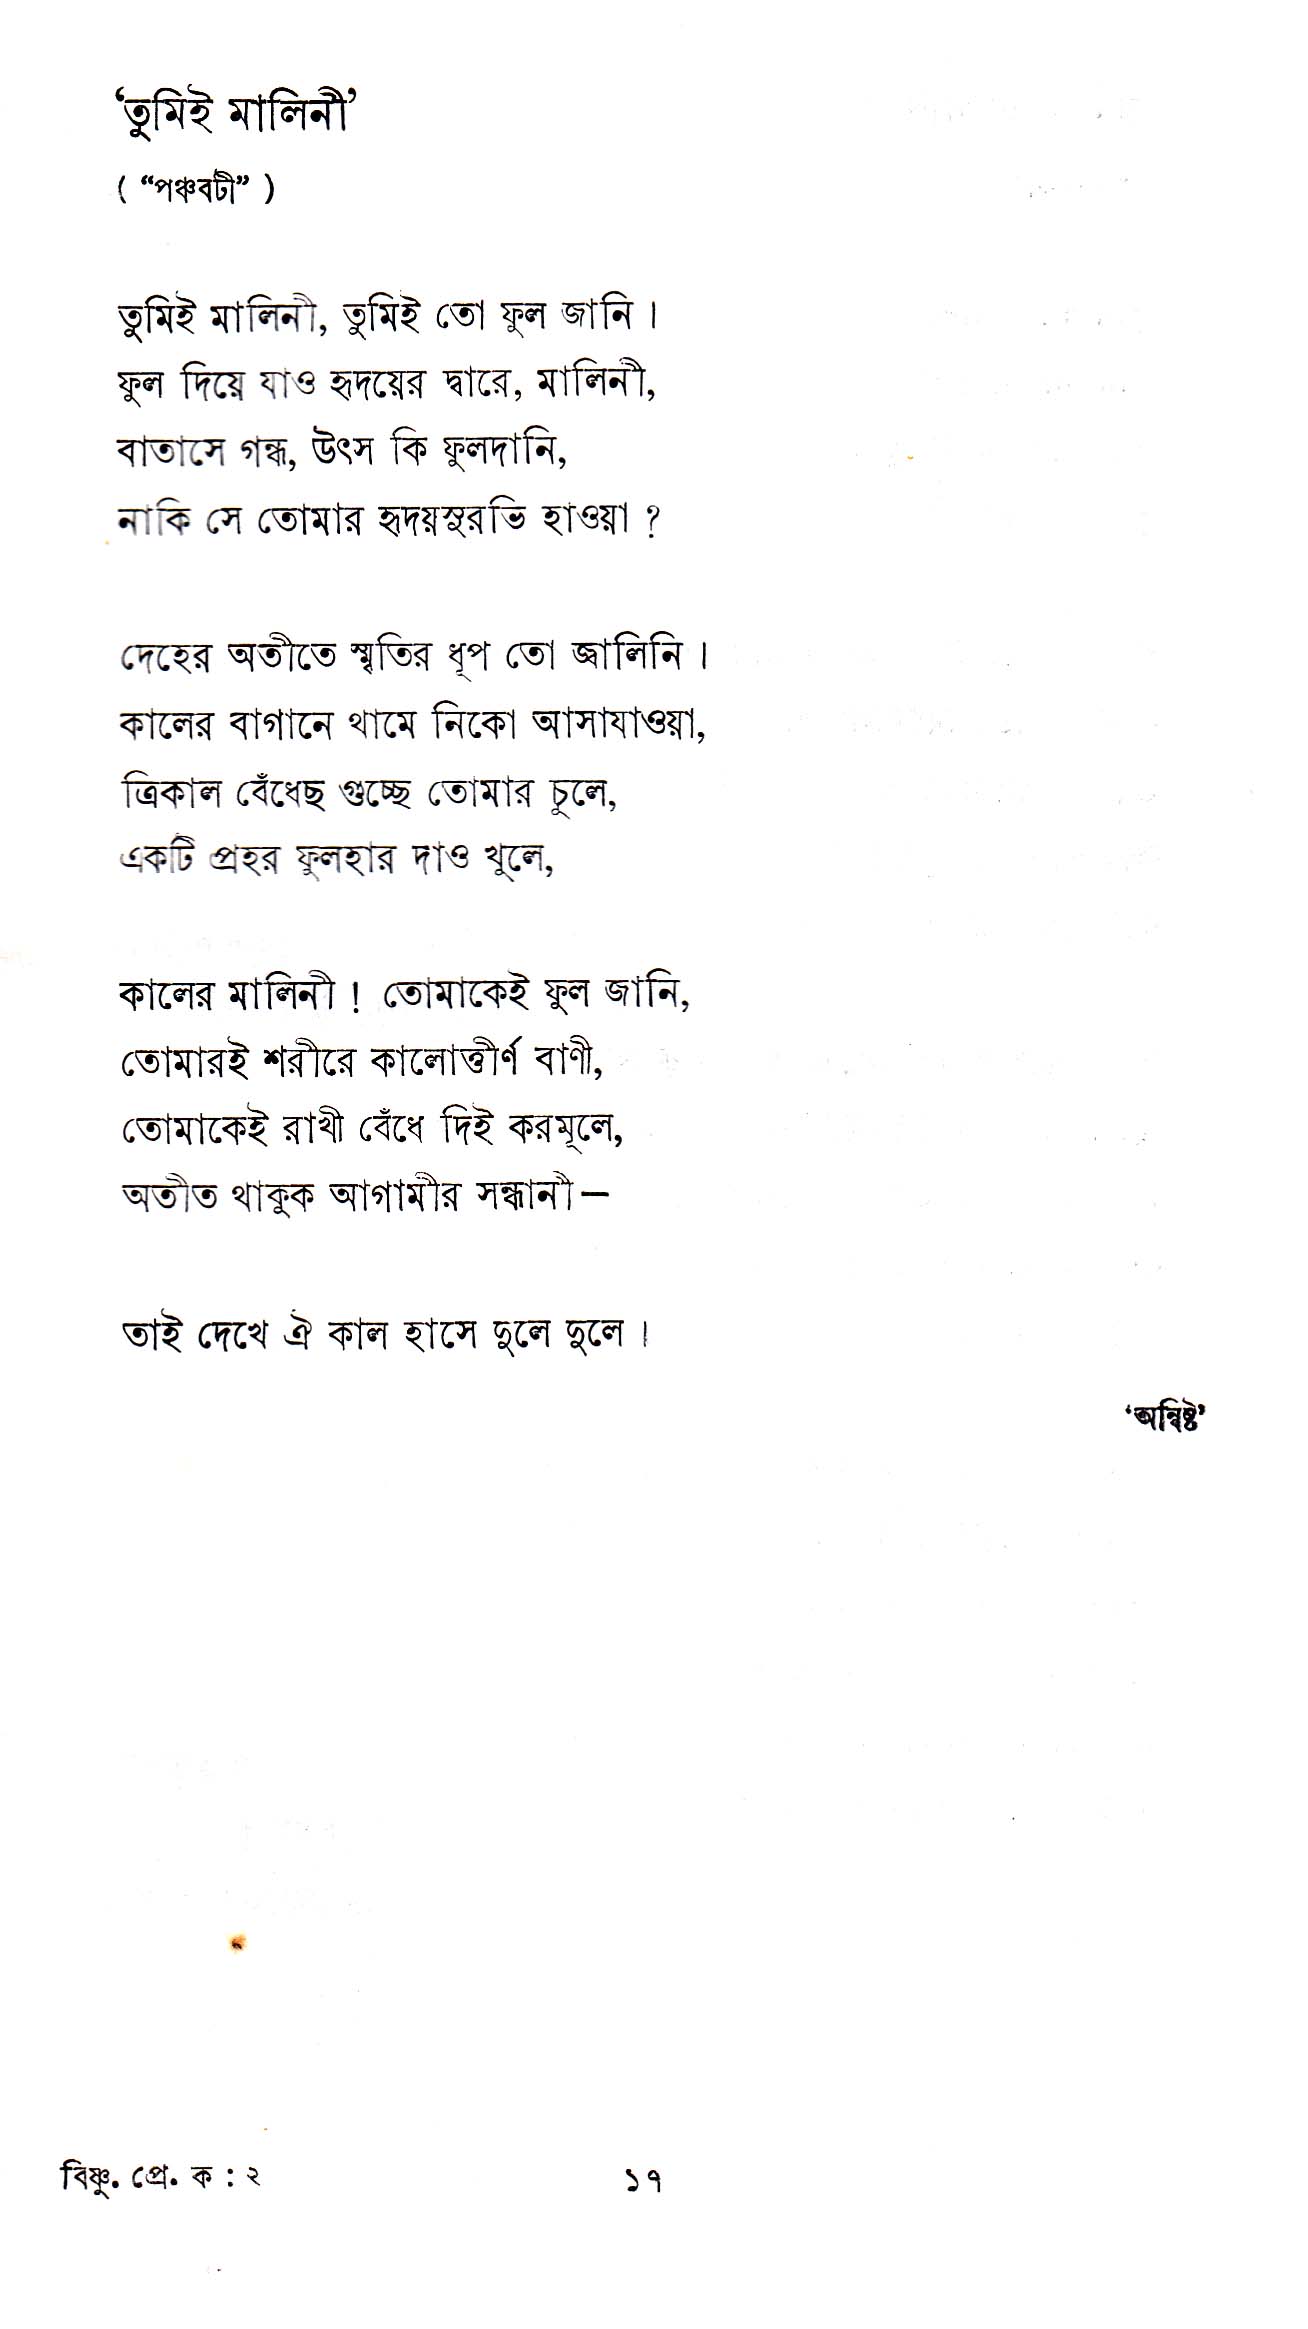 ‘তুমিই মালিনী’
( “পঞ্চবটী” )
তুমিই মালিনী, তুমিই তো ফুল জানি ।
ফুল দিয়ে যাও হৃদয়ের দ্বারে, মালিনী,
বাতাসে গন্ধ, উৎস কি ফুলদানি,
নাকি সে তোমার হৃদয়সুরভি হাওয়া ?
দেহের অতীতে স্মৃতির ধূপ তো জ্বালিনি ।
কালের বাগানে থামে নিকো আসাযাওয়া,
ত্রিকাল বেঁধেছ গুচ্ছে তোমার চুলে,
একটি প্রহর ফুলহার দাও খুলে,
কালের মালিনী ! তোমাকেই ফুল জানি,
তোমারই শরীরে কালোত্তীর্ণ বাণী,
তোমাকেই রাখী বেঁধে দিই করমূলে,
অতীত থাকুক আগামীর সন্ধানী—
তাই দেখে ঐ কাল হাসে দুলে দুলে ।
‘অন্বিষ্ট’
বিষ্ণু. প্রে. ক : ২ ১৭